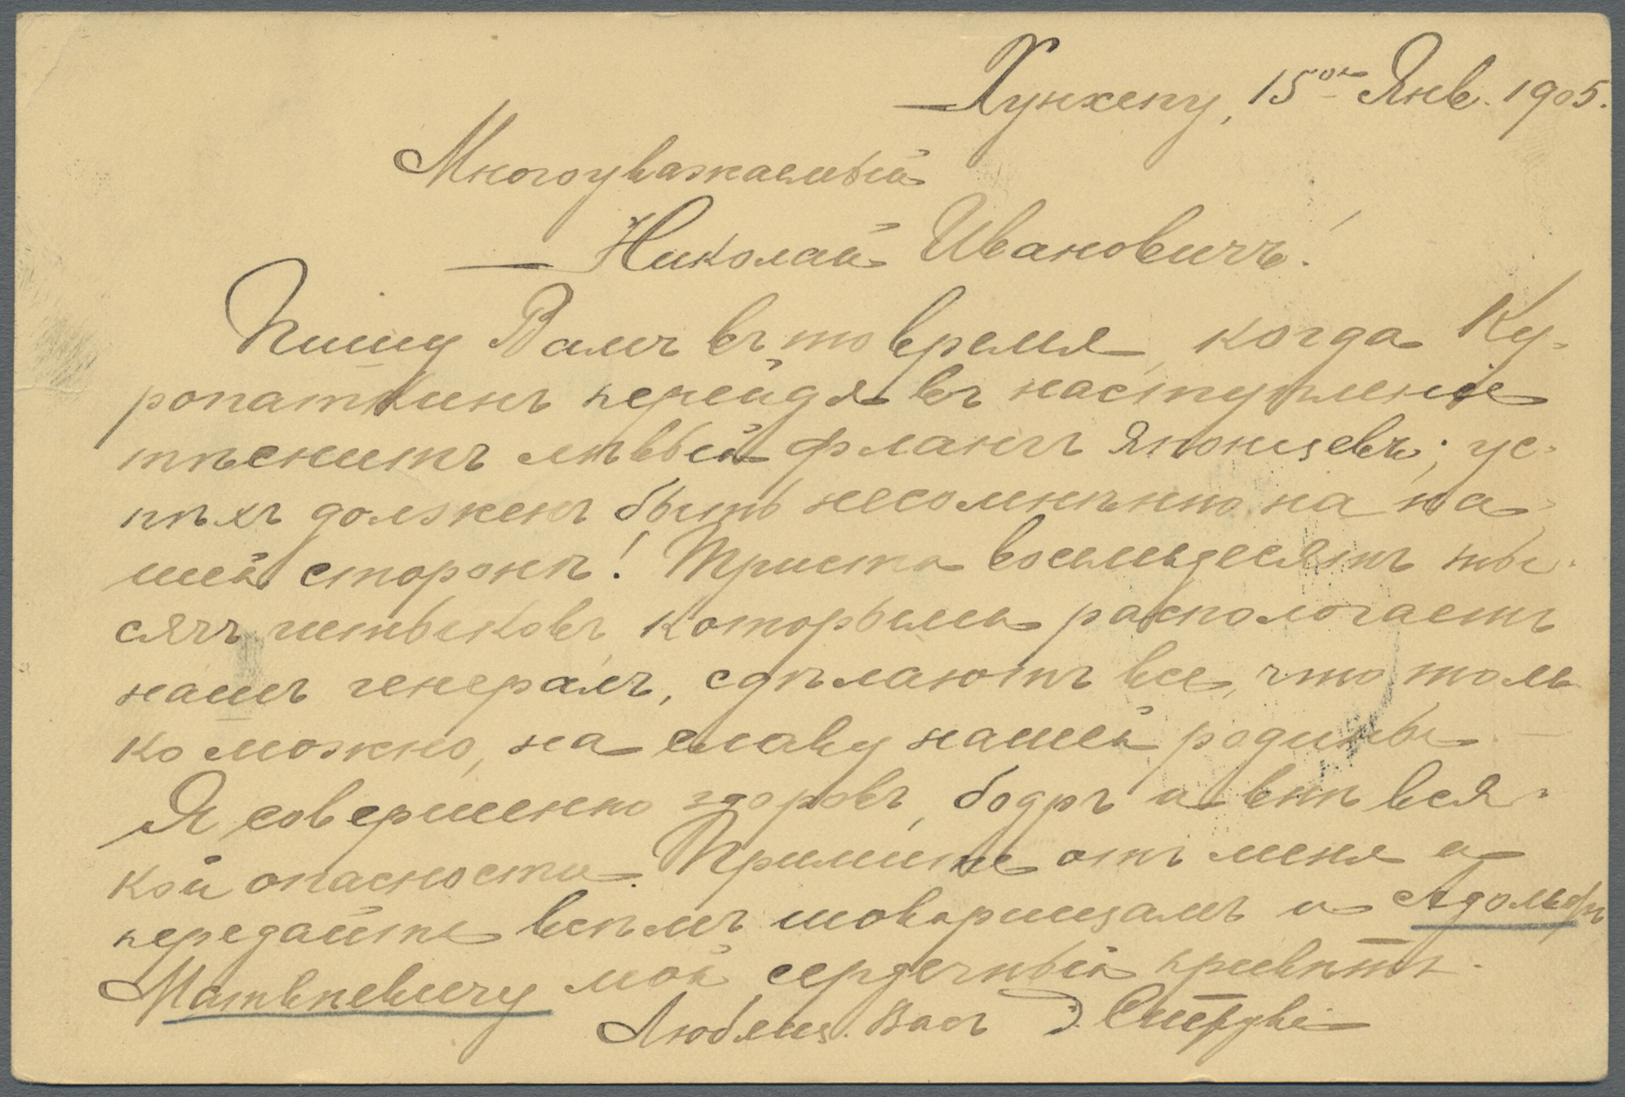 Хунхепу, 15го Янв. 1905.
Многоуважаемый
Николай Ивановичъ!
Пишу Вамъ въ то время, когда Ку-
ропаткинъ перейдя въ наступленіе
тѣснитъ лѣвый флангъ Японцевъ; ус-
пѣхъ долженъ быть несомнѣнно на на-
шей сторонѣ! Триста восемьдесятъ ты-
сячъ штыковъ, которыми распологаетъ
нашъ генералъ, сдѣлаютъ все, что толь
ко можно, на славу нашей родины
Я совершенно здоровъ, бодръ и внѣ вся-
кой опасности. Примите отъ меня и
передайте всѣмъ товарищамъ и Адольфу
Матвѣевичу мой сердечный привѣтъ.
Любящ. Васъ Э. Струве